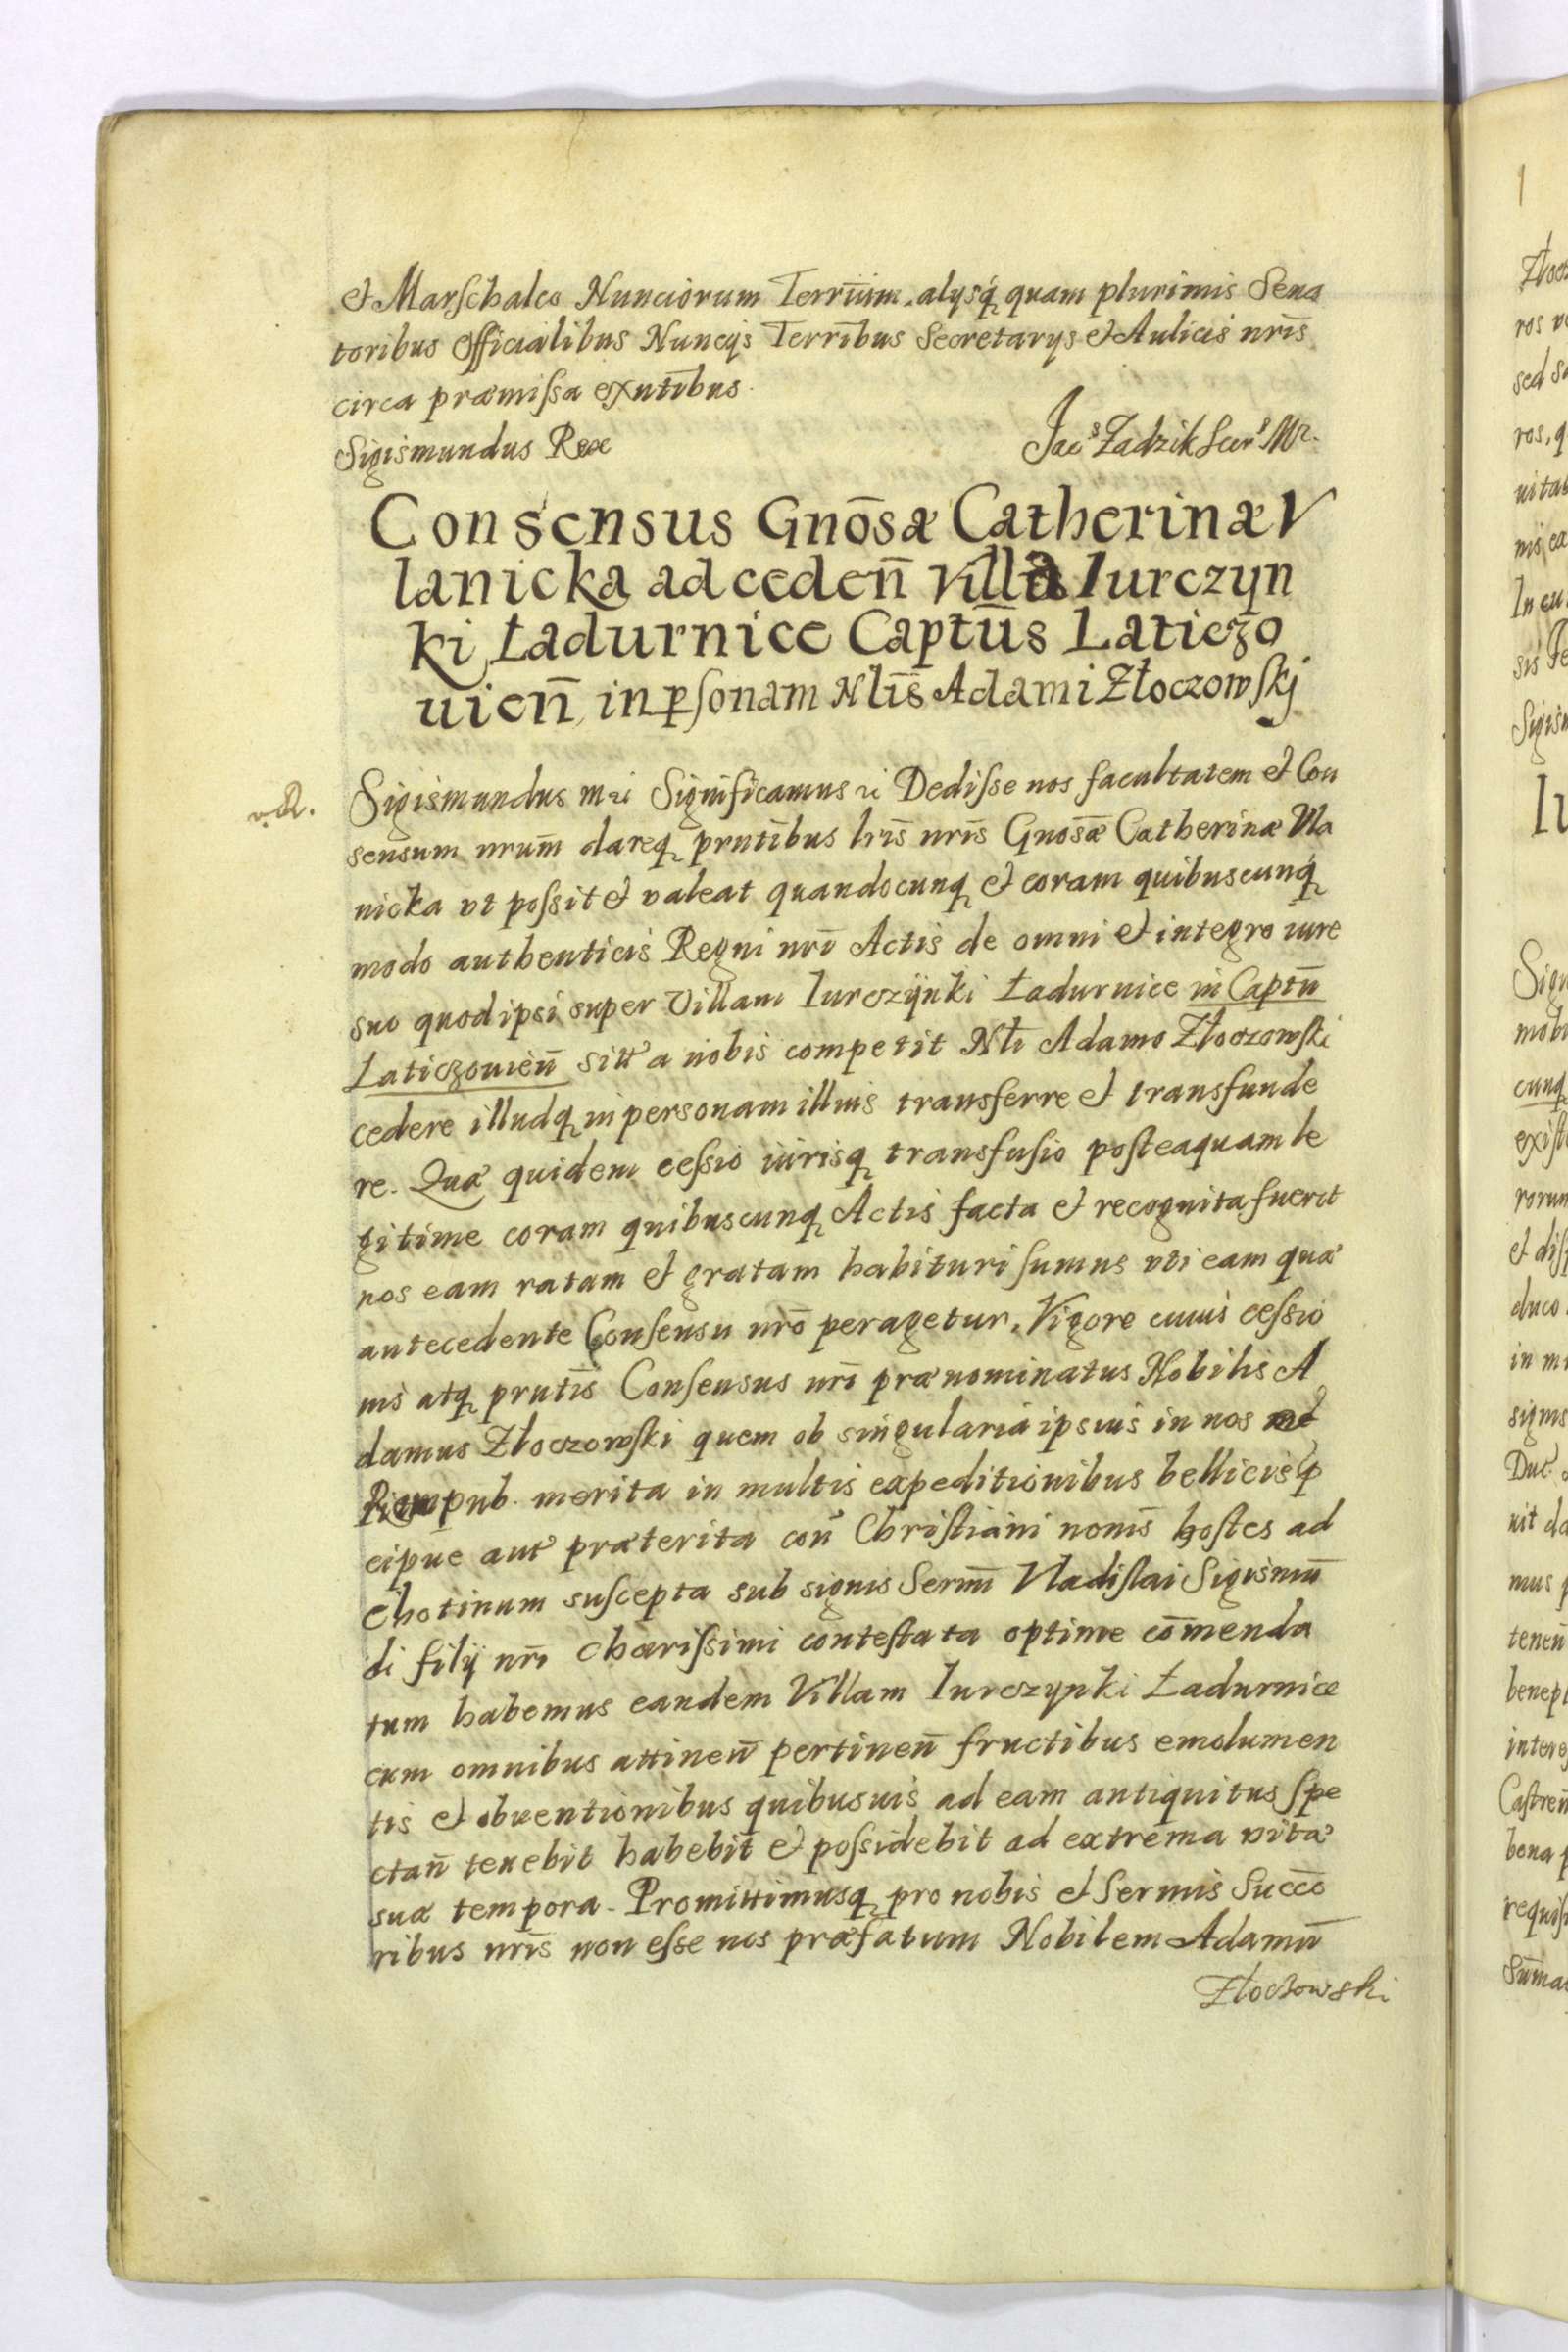 et Marschalco Nunciorum Terrium. alysq́ quam plurimis Sena
toribus officialibus Nuncijs Terribus Secretarys et Aulicis nrīs
circa præmissa exntībus.
Sigismundus Rex
Jacˢ Zadzik Secrˢ Mr.
Consensus Gnōsæ Catherinæ V
lanicka ad ceden̄ villa Iurczyn
ki Ładurnice Captūs Laticzo
uien̄ in psonam Nlīs Adami Złoczowskj
Sigismundus m Significamus Dedisse nos facultatem et Con
sensum nrum̄ dareq prntībus lrīs nrīs Gnosǣ Catherinæ Vla
nicka vt possit et valeat quandocunq et coram quibuscunq́
modo authenticis Regni nrī Actis de omni et integro iure
suo quod ipsi super Villam Iurczÿnki Ładurnice in Captū
Laticzouien̄ sitt a nobis competit Nlī Adamo Złoczowski
cedere illudq in personam illius transferre et transfunde
re. Quæ quidem cessio iurisq transfusio posteaquam le
gitime coram quibuscunq Actis facta et recognita fuerit
nos eam ratam et gratam habituri sumus vti eam quæ
antecedente Consensu nrō peragetur. Vigore cuius cessio
nis atq prntīs Consensus nrī prænominatus Nobilis A
damus Złoczowski quem ob singularia ipsius in nos et
Rempub. merita in multis expeditionibus bellicis p
cipue aut præterita con̄ Christiani nomīs hostes ad
Chotinum suscepta sub signis Sermī Vladislai Sigismū
di filij nrī charissimi contestata optime com̄enda
tum habemus eandem Villam Iurczynki Ładurnice
cum omnibus attinen̄ pertinen̄ fructibus emolumen
tis et obuentionibus quibusuis ad eam antiquitus spe
ctan̄ tenebit habebit et possidebit ad extrema vitæ
suæ tempora. Promittimusq pro nobis et Sermis Succō
ribus nrīs non esse nos præfatum Nobilem Adamū
Złoczowski